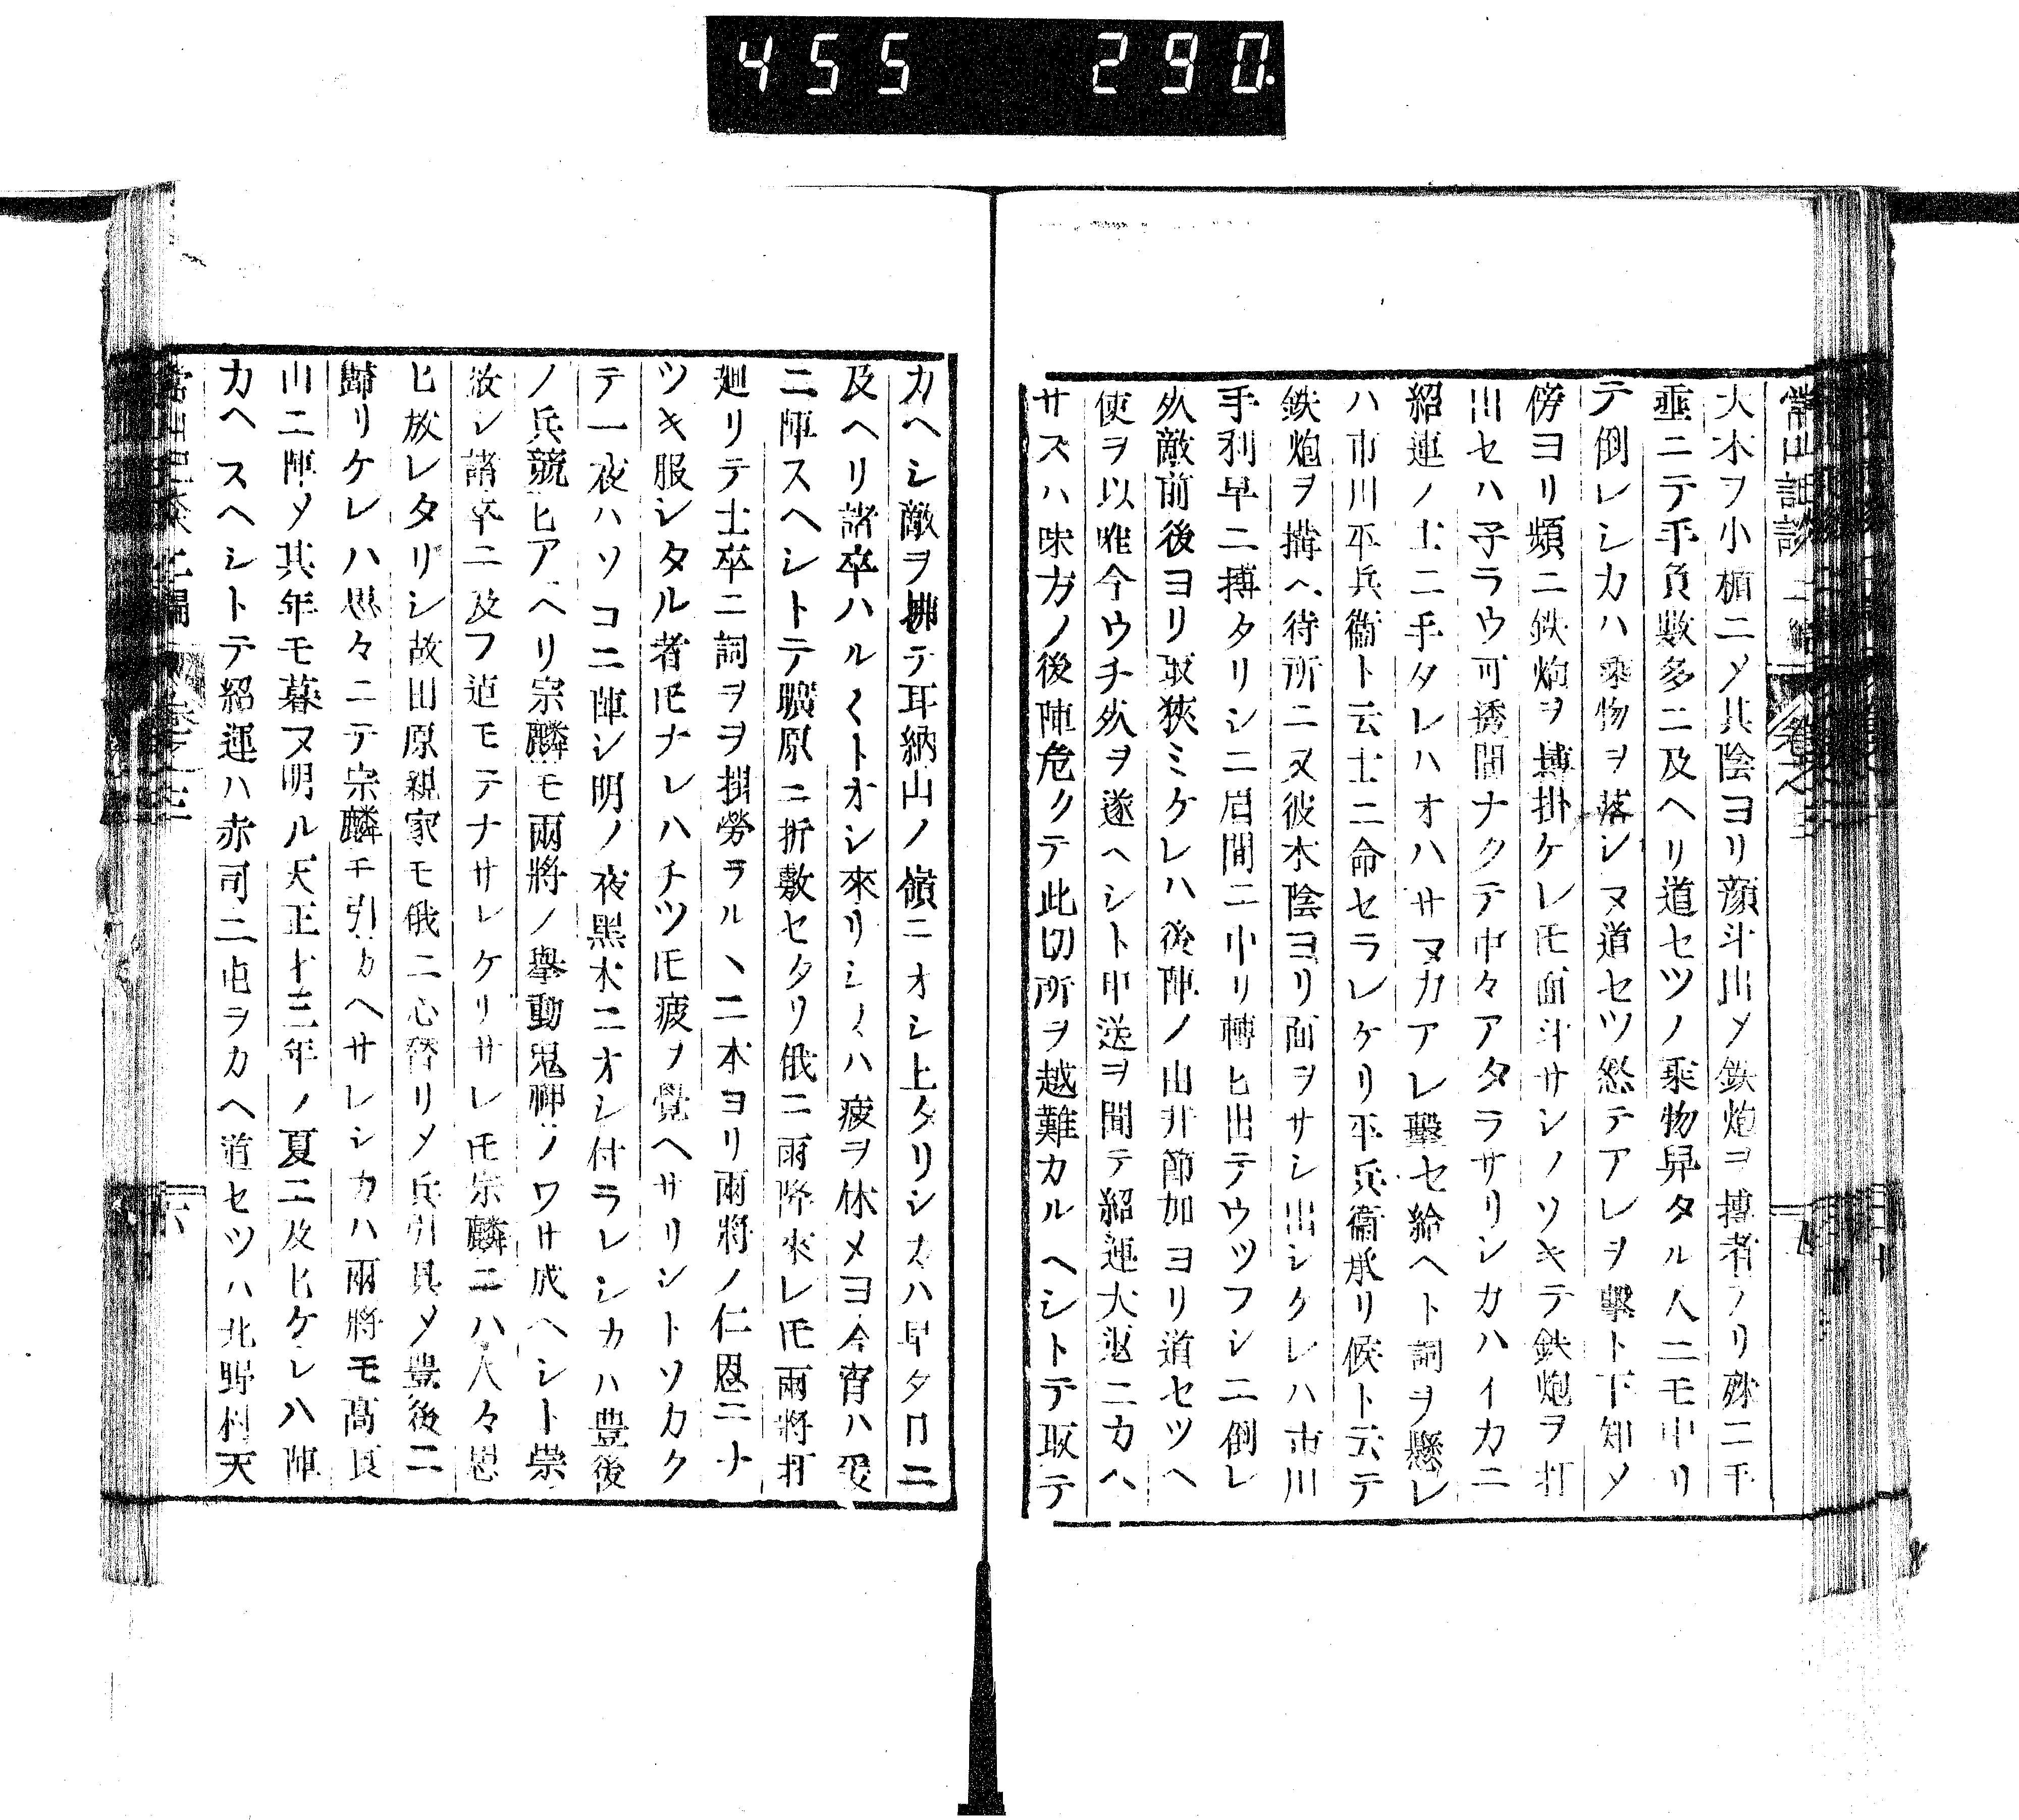 455 290.
常山記談
大木ヲ小楯ニメ其陰ヨリ顔斗出メ鉄炮ヲ搏者アリ殊ニ手
垂ニテ手負數多ニ及ヘリ道セツノ乗物舁タル人ニモ中リ
テ倒レシカハ乗物ヲ落シヌ道セツ怒テアレヲ擊ト下知メ
傍ヨリ頻ニ鉄炮ヲ搏掛ケレ𪜈面斗サシノソキテ鉄炮ヲ打
出セハ子ラウ可透間ナクテ中々アタラサリシカハイカニ
紹運ノ士ニ手タレハオハサヌカアレ擊セ給ヘト詞ヲ懸レ
ハ市川平兵衞ト云士ニ命セラレケリ平兵衞承リ候ト云テ
鉄炮ヲ搆ヘ待所ニ又彼木陰ヨリ面ヲサシ出シケレハ市川
手利早ニ搏タリシニ眉間ニ中リ轉ヒ出テウツフシニ倒レ
𠆢敵前後ヨリ取狹ミケレハ後陣ノ山井節加ヨリ道セツヘ
使ヲ以唯今ウチ死ヲ遂ヘシト申送ヲ聞テ紹運大返ニカヘ
サスハ味方ノ後陣危クテ此切所ヲ越難カルヘシトテ取テ
カヘシ敵ヲ拂テ耳納山ノ嶺ニオシ上タリシハ早夕日ニ
及ヘリ諸卒ハルくトオシ來リシハ疲ヲ休メヨ今宵ハ爰
ニ陣スヘシトテ曠原ニ折敷セタリ俄ニ雨降來レ𪜈兩將打
廻リテ士卒ニ詞ヲヲ掛勞ラルヽ二本ヨリ兩將ノ仁恩ニナ
ツキ服シタル者𪜈ナレハチツ𪜈疲ヲ覺ヘサリシトソカク
テ一夜ハソコニ陣シ明ノ夜黑木ニオシ付ラレシカハ豊後
ノ兵競ヒアヘリ宗麟モ兩將ノ擧動鬼神ノワサ成ヘシト崇
敬シ諸卒ニ及フ迠モテナサレケリサレ𪜈宗麟ニハ人々思
ヒ放レタリシ故田原親家モ俄ニ心替リメ兵引具メ豊後ニ
歸リケレハ思々ニテ宗麟モ引カヘサレシカハ兩將モ髙良
山ニ陣メ其年モ暮ヌ明ル天正十三年ノ夏ニ及ヒケレハ陣
カヘスヘシトテ紹運ハ赤司ニ屯ヲカヘ道セツハ北野村天
六